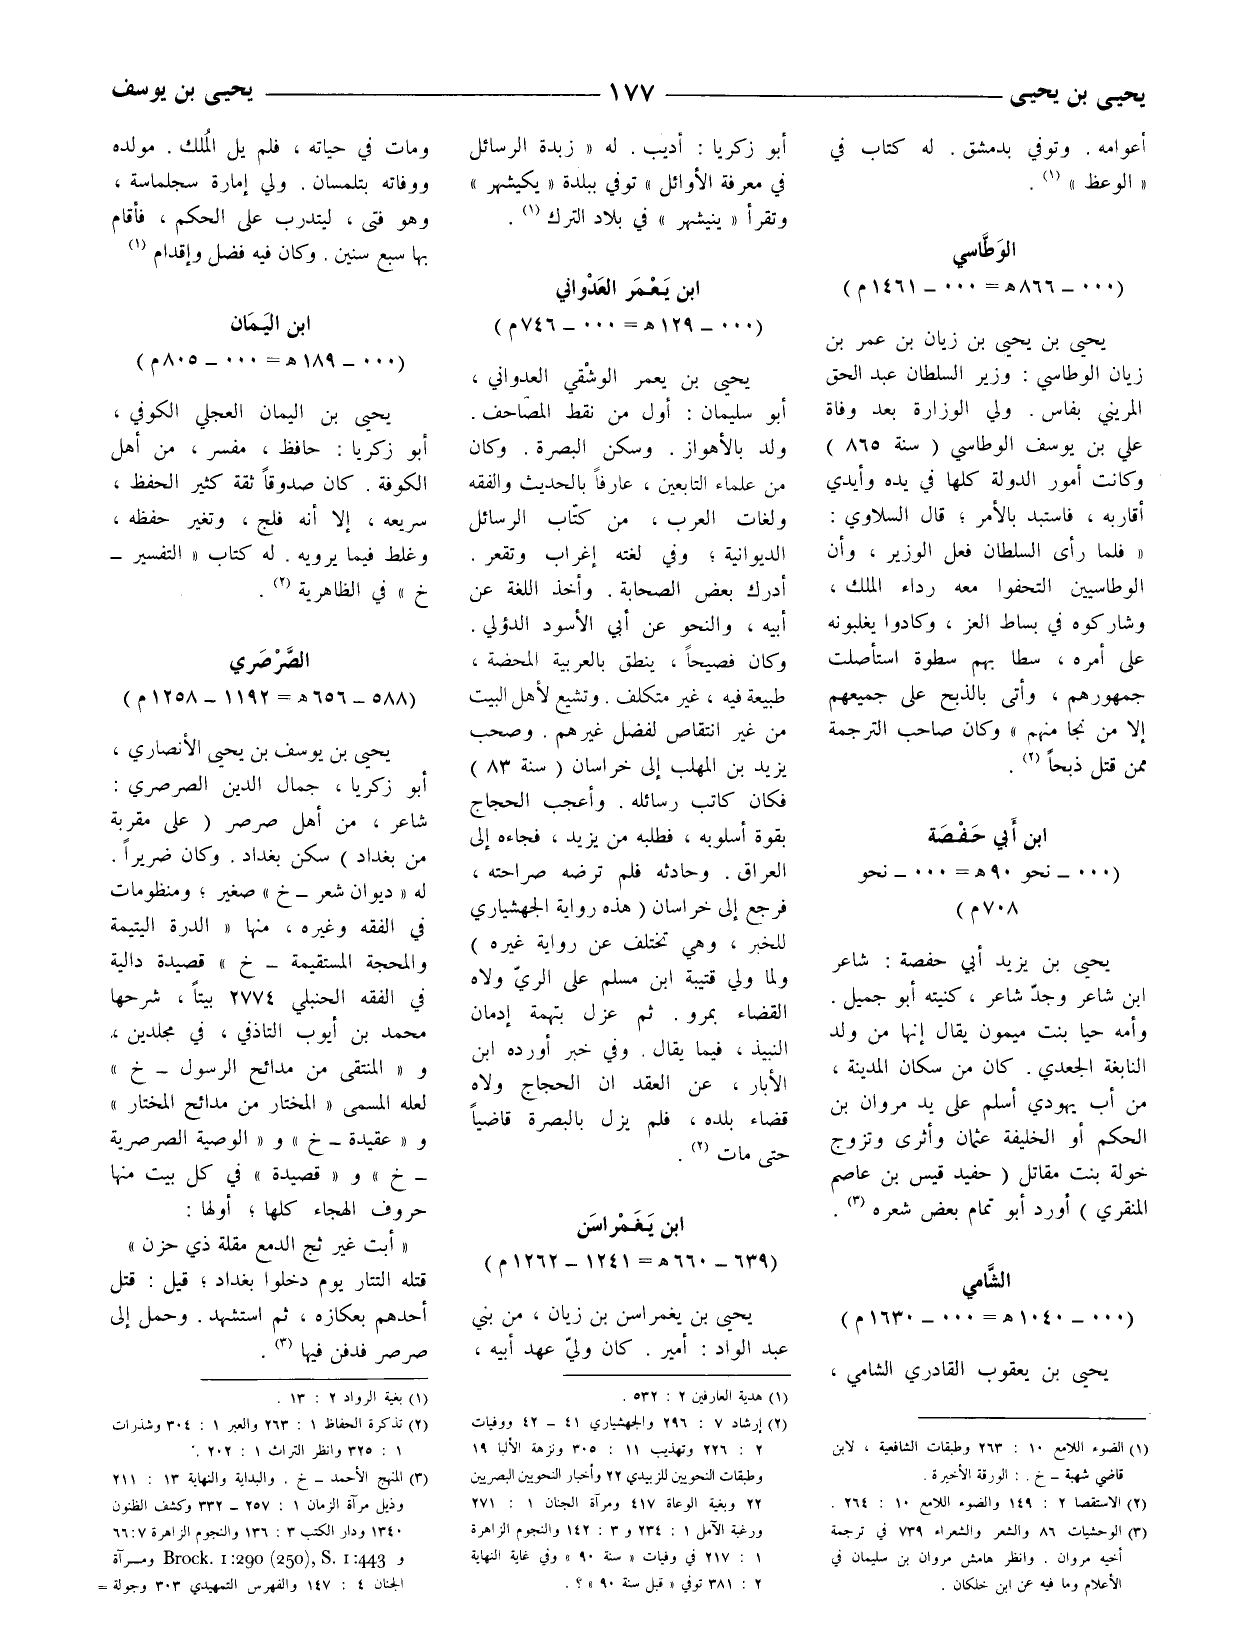 يحيى بن يحيى ــــــ ١٧٧ ــــــ يحيى بن يوسف
أعوامه . وتوفي بدمشق . له كتاب في
« الوعظ » (١) .
الوَطَّاسي
(٠٠٠ ــ ٨٦٦ هـ = ٠٠٠ ــ ١٤٦١ م)
يحيى بن يحيى بن زيان بن عمر بن
زيان الوطاسي : وزير السلطان عبد الحق
المريني بفاس . ولي الوزارة بعد وفاة
علي بن يوسف الوطاسي ( سنة ٨٦٥ )
وكانت أمور الدولة كلها في يده وأيدي
أقاربه ، فاستبد بالأمر ؛ قال السلاوي :
« فلما رأى السلطان فعل الوزير ، وأن
الوطاسيين التحفوا معه رداء الملك ،
وشاركوه في بساط العز ، وكادوا يغلبونه
على أمره ، سطا بهم سطوة استأصلت
جمهورهم ، وأتى بالذبح على جميعهم
إلا من نجا منهم » وكان صاحب الترجمة
ممن قتل ذبحاً (٢) .
ابن أَبي حَفْصَة
(٠٠٠ ــ نحو ٩٠ هـ = ٠٠٠ ــ نحو
٧٠٨ م)
يحيى بن يزيد أبي حفصة : شاعر
ابن شاعر وجدّ شاعر ، كنيته أبو جميل .
وأمه حيا بنت ميمون يقال إنها من ولد
النابغة الجعدي . كان من سكان المدينة ،
من أب يهودي أسلم على يد مروان بن
الحكم أو الخليفة عثمان وأثرى وتزوج
خولة بنت مقاتل ( حفيد قيس بن عاصم
المنقري ) أورد أبو تمام بعض شعره (٣) .
الشَّامي
(٠٠٠ ــ ١٠٤٠ هـ = ٠٠٠ ــ ١٦٣٠ م)
يحيى بن يعقوب القادري الشامي ،
(١) الضوء اللامع ١٠ : ٢٦٣ وطبقات الشافعية ، لابن
قاضي شهبة ــ خ . : الورقة الأخيرة .
(٢) الاستقصا ٢ : ١٤٩ والضوء اللامع ١٠ : ٢٦٤ .
(٣) الوحشيات ٨٦ والشعر والشعراء ٧٣٩ في ترجمة
أخيه مروان . وانظر هامش مروان بن سليمان في
الأعلام وما فيه عن ابن خلكان .
أبو زكريا : أديب . له « زبدة الرسائل
في معرفة الأوائل » توفي ببلدة « يكيشهر »
وتقرأ « ينيشهر » في بلاد الترك (١) .
ابن يَعْمَر العَدْواني
(٠٠٠ ــ ١٢٩ هـ = ٠٠٠ ــ ٧٤٦ م)
يحيى بن يعمر الوشْقي العدواني ،
أبو سليمان : أول من نقط المصاحف .
ولد بالأهواز . وسكن البصرة . وكان
من علماء التابعين ، عارفاً بالحديث والفقه
ولغات العرب ، من كتّاب الرسائل
الديوانية ؛ وفي لغته إغراب وتقعر .
أدرك بعض الصحابة . وأخذ اللغة عن
أبيه ، والنحو عن أبي الأسود الدؤلي .
وكان فصيحاً ، ينطق بالعربية المحضة ،
طبيعة فيه ، غير متكلف . وتشيع لأهل البيت
من غير انتقاص لفضل غيرهم . وصحب
يزيد بن المهلب إلى خراسان ( سنة ٨٣ )
فكان كاتب رسائله . وأعجب الحجاج
بقوة أسلوبه ، فطلبه من يزيد ، فجاءه إلى
العراق . وحادثه فلم ترضه صراحته ،
فرجع إلى خراسان ( هذه رواية الجهشياري
للخبر ، وهي تختلف عن رواية غيره )
ولما ولي قتيبة ابن مسلم على الريّ ولاه
القضاء بمرو . ثم عزل بتهمة إدمان
النبيذ ، فيما يقال . وفي خبر أورده ابن
الأبار ، عن العقد ان الحجاج ولاه
قضاء بلده ، فلم يزل بالبصرة قاضياً
حتى مات (٢) .
ابن يَغَمْراسَن
(٦٣٩ ــ ٦٦٠ هـ = ١٢٤١ ــ ١٢٦٢ م)
يحيى بن يغمراسن بن زيان ، من بني
عبد الواد : أمير . كان وليّ عهد أبيه ،
(١) هدية العارفين ٢ : ٥٣٢ .
(٢) إرشاد ٧ : ٢٩٦ والجهشياري ٤١ ــ ٤٢ ووفيات
٢ : ٢٢٦ وتهذيب ١١ : ٣٠٥ ونزهة الألبا ١٩
وطبقات النحويين للزبيدي ٢٢ وأخبار النحويين البصريين
٢٢ وبغية الوعاة ٤١٧ ومرآة الجنان ١ : ٢٧١
ورغبة الآمل ١ : ٢٣٤ و ٣ : ١٤٢ والنجوم الزاهرة
١ : ٢١٧ في وفيات « سنة ٩٠ » وفي غاية النهاية
٢ : ٣٨١ توفي « قبل سنة ٩٠ » ؟ .
ومات في حياته ، فلم يل المُلك . مولده
ووفاته بتلمسان . ولي إمارة سجلماسة ،
وهو فتى ، ليتدرب على الحكم ، فأقام
بها سبع سنين . وكان فيه فضل وإقدام (١)
ابن اليَمَان
(٠٠٠ ــ ١٨٩ هـ = ٠٠٠ ــ ٨٠٥ م)
يحيى بن اليمان العجلي الكوفي ،
أبو زكريا : حافظ ، مفسر ، من أهل
الكوفة . كان صدوقاً ثقة كثير الحفظ ،
سريعه ، إلا أنه فلج ، وتغير حفظه ،
وغلط فيما يرويه . له كتاب « التفسير ــ
خ » في الظاهرية (٢) .
الصَّرْصَري
(٥٨٨ ــ ٦٥٦ هـ = ١١٩٢ ــ ١٢٥٨ م)
يحيى بن يوسف بن يحيى الأنصاري ،
أبو زكريا ، جمال الدين الصرصري :
شاعر ، من أهل صرصر ( على مقربة
من بغداد ) سكن بغداد . وكان ضريراً .
له « ديوان شعر ــ خ » صغير ؛ ومنظومات
في الفقه وغيره ، منها « الدرة اليتيمة
والمحجة المستقيمة ــ خ » قصيدة دالية
في الفقه الحنبلي ٢٧٧٤ بيتاً ، شرحها
محمد بن أيوب التاذفي ، في مجلدين ،
و « المنتقى من مدائح الرسول ــ خ »
لعله المسمى « المختار من مدائح المختار »
و « عقيدة ــ خ » و « الوصية الصرصرية
ــ خ » و « قصيدة » في كل بيت منها
حروف الهجاء كلها ؛ أولها :
« أبت غير ثج الدمع مقلة ذي حزن »
قتله التتار يوم دخلوا بغداد ؛ قيل : قتل
أحدهم بعكازه ، ثم استشهد . وحمل إلى
صرصر فدفن فيها (٣) .
(١) بغية الرواد ٢ : ١٣ .
(٢) تذكرة الحفاظ ١ : ٢٦٣ والعبر ١ : ٣٠٤ وشذرات
١ : ٣٢٥ وانظر التراث ١ : ٢٠٢ .
(٣) المنهج الأحمد ــ خ . والبداية والنهاية ١٣ : ٢١١
وذيل مرآة الزمان ١ : ٢٥٧ ــ ٣٣٢ وكشف الظنون
١٣٤٠ ودار الكتب ٣ : ١٣٦ والنجوم الزاهرة ٧ : ٦٦
و Brock. I :290 (250), S. I :443 ومــرآة
الجنان ٤ : ١٤٧ والفهرس التمهيدي ٣٠٣ وجولة =